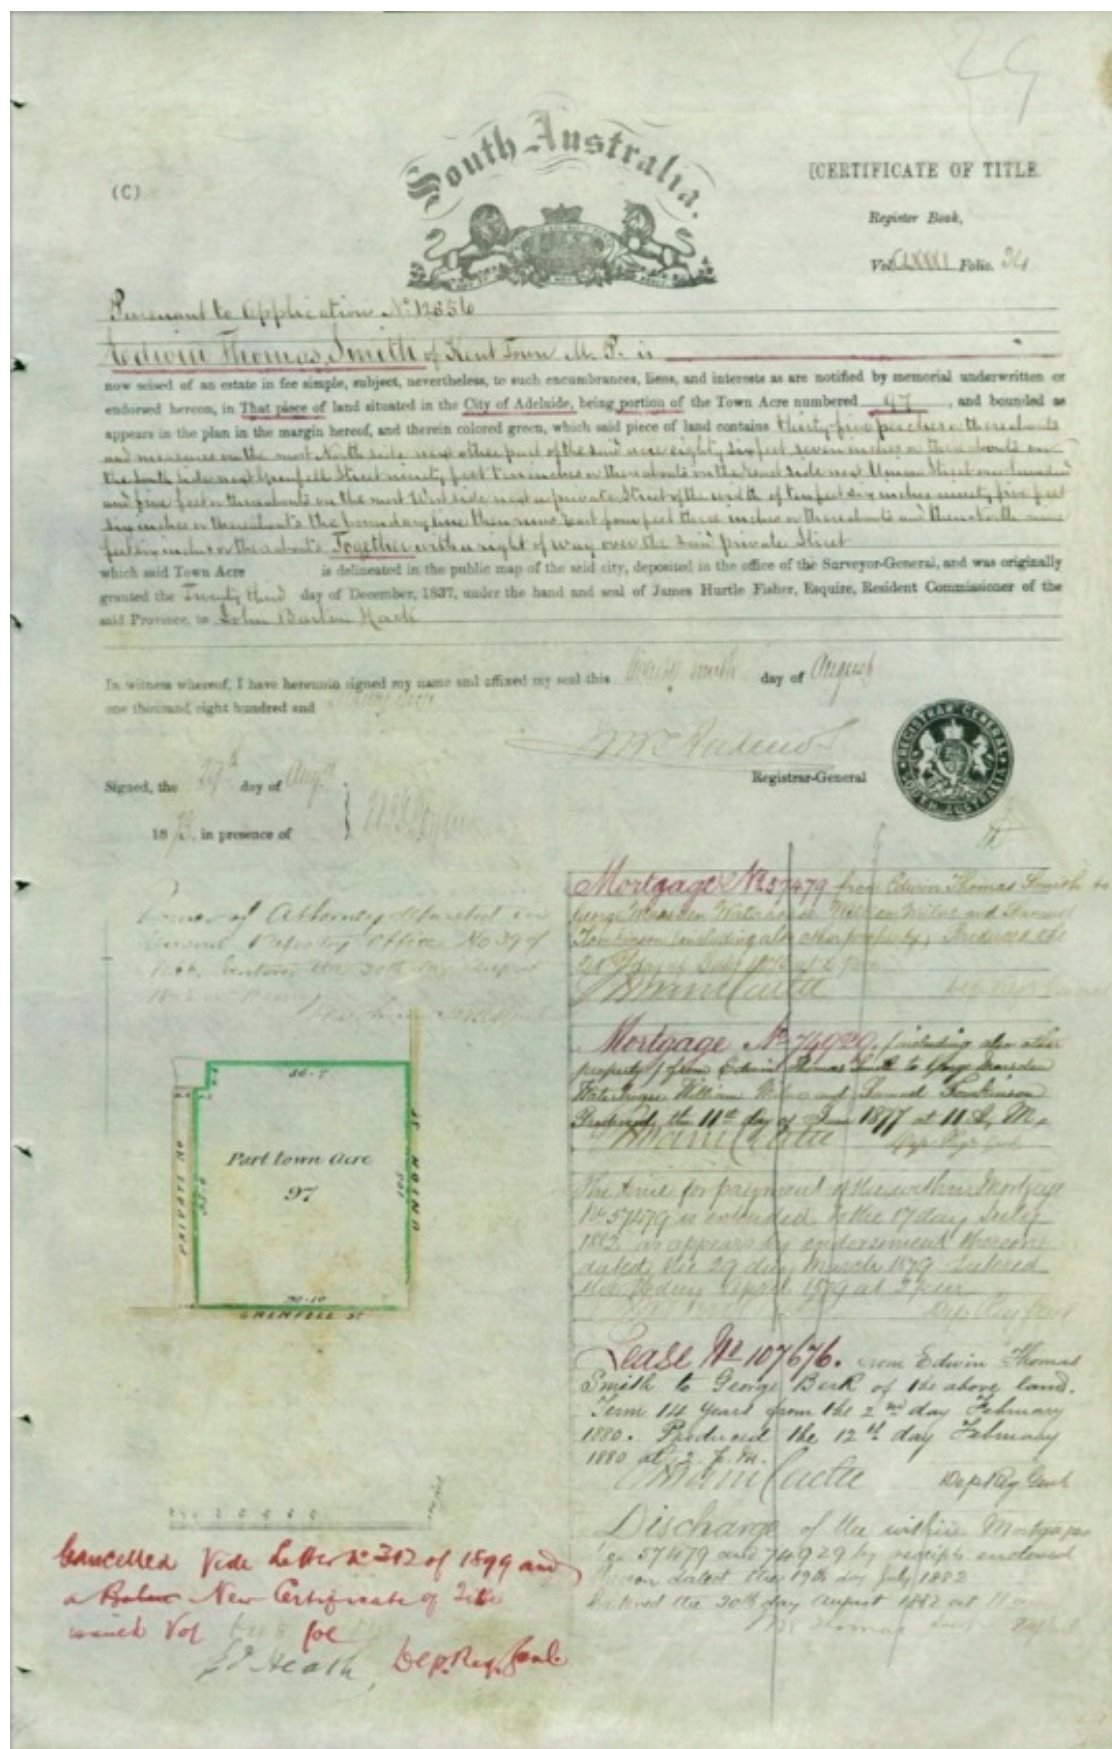 29
South Australia.
(C)
[CERTIFICATE OF TITLE.
Register Book,
Vol. CLXXXI Folio. 34
Pursuant to Application No. 12656
Edwin Thomas Smith of Kent Town M. P. is
now seised of an estate in fee simple, subject, nevertheless, to such encumbrances, liens, and interests as are notified by memorial underwritten or
endorsed hereon, in That piece of land situated in the City of Adelaide, being portion of the Town Acre numbered 97, and bounded as
appears in the plan in the margin hereof, and therein colored green, which said piece of land contains thirty five perches or thereabouts
and measures on the most North side next other part of the said acre eighty six feet seven inches or thereabouts on
the South side next Grenfell Street ninety feet ten inches or thereabouts on the East side next Union Street one hundred
and five feet or thereabouts on the most West side next a private Street of the width of ten feet six inches ninety five feet
six inches or thereabouts the boundary line then runs East four feet three inches or thereabouts and then North nine
feet six inches or thereabouts Together with a right of way over the said private Street
which said Town Acre is delineated in the public map of the said city, deposited in the office of the Surveyor-General, and was originally
granted the Twenty third day of December, 1837, under the hand and seal of James Hurtle Fisher, Esquire, Resident Commissioner of the
said Province, to John Barton Hack
In witness whereof, I have hereunto signed my name and affixed my seal this Twenty ninth day of August
one thousand eight hundred and
Registrar-General
REGISTRAR GENERAL SOUTH AUSTRALIA
Signed, the 29th day of Augt
18 73, in presence of
Power of Attorney deposited in
General Registry Office No 39 of
day August
Mortgage No. 57479 from Edwin Thomas Smith to
George Marsden Waterhouse William Milne and Samuel
Tomkinson (including also other property) Produced the
Mortgage No. 74929. (including also other
property) from Edwin Thomas Smith to George Marsden
Waterhouse William Milne and Samuel Tomkinson
Produced the 11th day of June 1877 at 11 A. M.
Dep Reg Genl
The time for payment of the within Mortgage
No. 57479 is extended to the 17 day July
1882 as appears by endorsement thereon
dated the 29 day March 1879 Entered
the day April 1879 at 2 pm
Dep Reg Genl
86-7
Part town Acre
97
PRIVATE RD
95-6
105
UNION ST
90-10
GRENFELL ST
Lease No. 107676. from Edwin Thomas
Smith to George Berk of the above land.
Term 14 Years from the 2nd day February
1880. Produced the 12th day February
1880 at 2 p.m.
Dep Reg Genl
Discharge of the within Mortgages
No 57479 and 74929 by receipts endorsed
thereon dated the 19th day July 1882
Entered the 30th day August 1882 at 11 am
Cancelled Vide Letter No 312 of 1899 and
a New Certificate of Title
issued Vol fol
Heath, Dep. Reg. Genl.